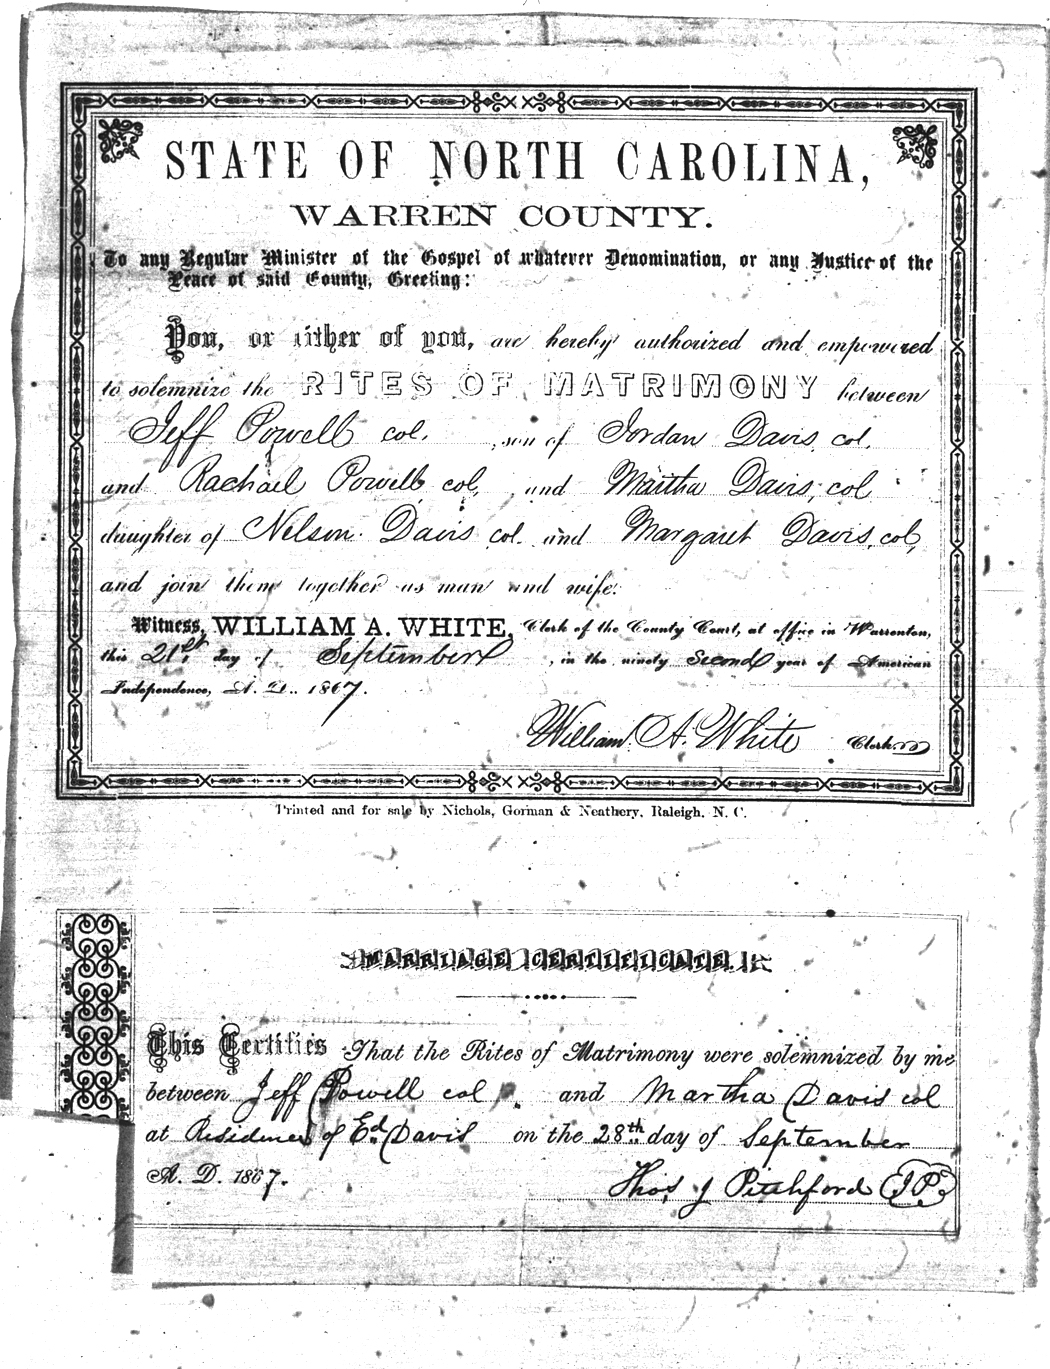 STATE OF NORTH CAROLINA,
WARREN COUNTY.
To any Regular Minister of the Gospel of whatever Denomination, or any Justice of the
Peace of said County, Greeting:
You, or either of you, are hereby authorized and empowered
to solemnize the RITES OF MATRIMONY between
Jeff Powell col. , son of Jordan Davis, col.
and Rachael Powell, col, , and Martha Davis, col
daughter of Nelson Davis col. and Margaret Davis, col,
and join them together as man and wife.
Witness, WILLIAM A. WHITE, Clerk of the County Court, at office in Warrenton,
this 21st day of September , in the ninety second year of American
Independence, A. D. 1867.
William A. White Clerk
Printed and for sale by Nichols, Gorman & Neathery, Raleigh, N. C.
MARRIAGE CERTIFICATE.
This Certifies That the Rites of Matrimony were solemnized by me
between Jeff Powell col , and Martha Davis col
at Residence of Ed. Davis on the 28th day of September
A. D. 1867. Thos J Pitchford JP